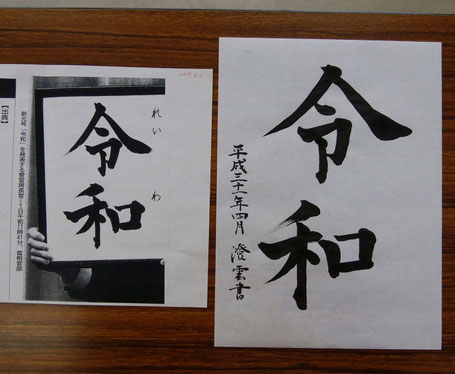 れいわ
令和
新元号「令和」を発表する菅官房長官=1日午前11時41分、首相官邸
【出典】
令和
平成三十一年四月 澄雲書